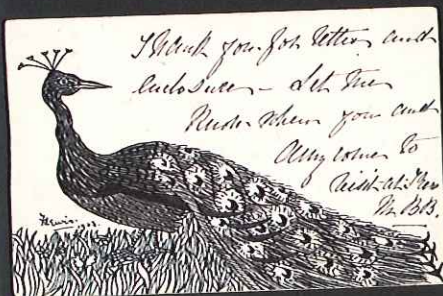 Thank you for letter and
enclosure – Let me
know when you and
Amy come to
visit at
M. B.B.
F Lewin